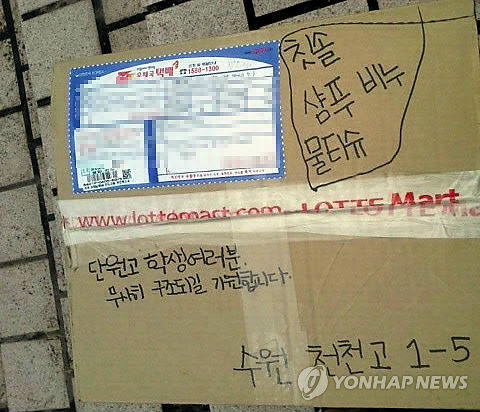 우체국택배
1588-1300
칫솔
샴푸 비누
물티슈
www.lottemart.com LOTTE Mart
단원고 학생여러분.
무사히 구조되길 기원합니다.
수원 천천고 1-5
YONHAP NEWS